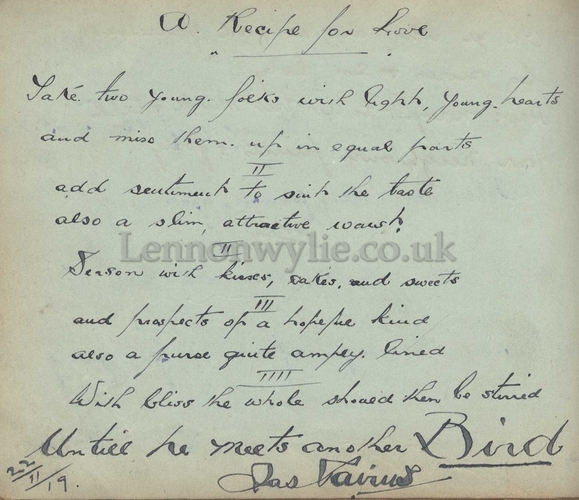 A. Recipe for Love
Take. two young. folks with light, young. hearts
and mix them. up in equal parts
II
add sentiment to suit the taste
also a slim, attractive waist.
II
Season with kisses, cakes, and sweets
III
and prospects of a hopeful kind
also a purse quite ampley. lined
IIII
With bliss the whole should then be stirred
Untill he meets another Bird
Jas
22/11/19.
Lennonwylie.co.uk